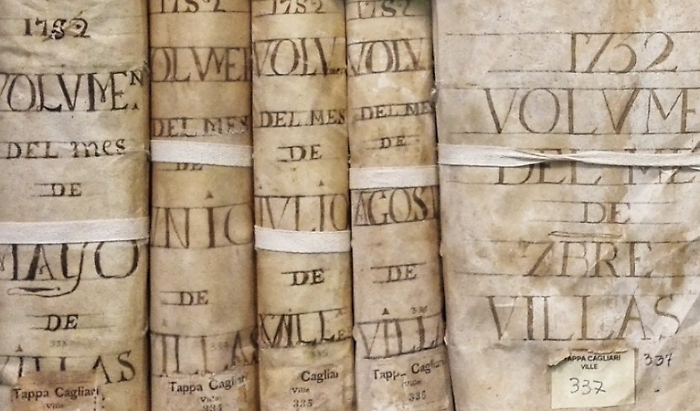 1752
VOLVMEN
DEL mes
DE
MAYO
DE
VILLAS
Tappa Cagliari
Ville
1752
OLVMEN
DEL MES
DE
VNIO
DE
ILLAS
Tappa Cagliari
Ville
335
1752
VOLV
DEL MES
DE
IVLIO
DE
VILLE
Cagliari
Ville
335
1752
VOLV
DEL MES
DE
AGOST
DE
VILLA
Tappa Cagliari
Ville
335
1752
VOLVME
DEL ME
DE
ZBRE
VILLAS
TAPPA CAGLIARI
VILLE
337
337